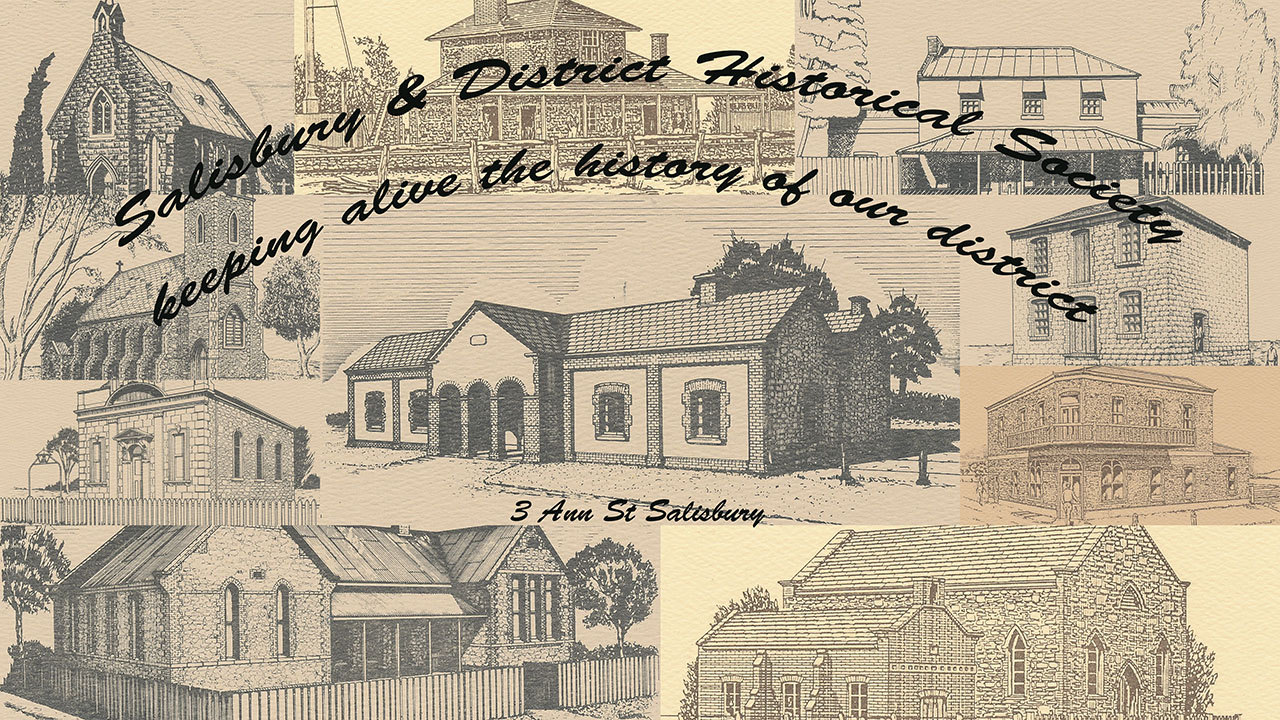 Salisbury & District Historical Society
keeping alive the history of our district
3 Ann St Salisbury